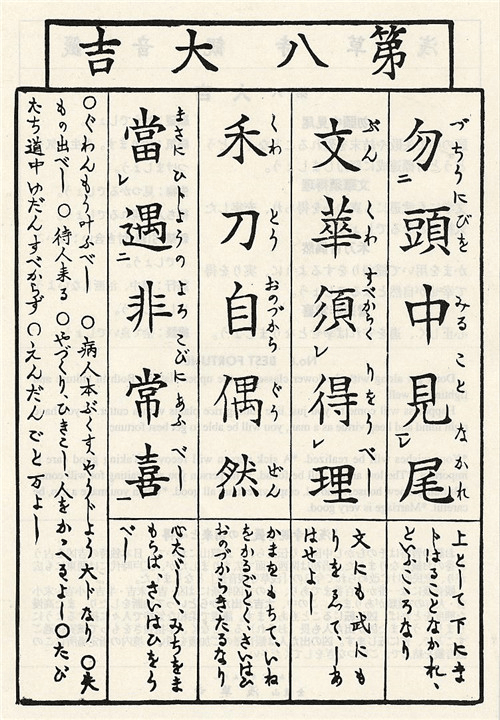 第八大吉
づちうにびを みることなかれ
勿頭中見尾
上として下にま
じはることなかれ、
といふこゝろなり
ぶんくわすべからくりをうべし
文華須得理
文にも武にも
りをえて、あ
はせよ
くわとうおのづからぐうぜん
禾刀自偶然
かまをもちて、いね
をかるごとく、さいはひ
おのづからきたるなり
まさにひじやうのよろこびにあふべし
當遇非常喜
心たゞしくみちをま
もらば、さいはひをう
べし
〇ぐわんもう叶ふべし 〇病人本ぷくす、やうじよう大じなり 〇失
もの出べし 〇待人来る 〇やづくり、ひきこし、人をかゝへるよし 〇たび
たち道中ゆだんすべからず 〇えんだんごと万よし